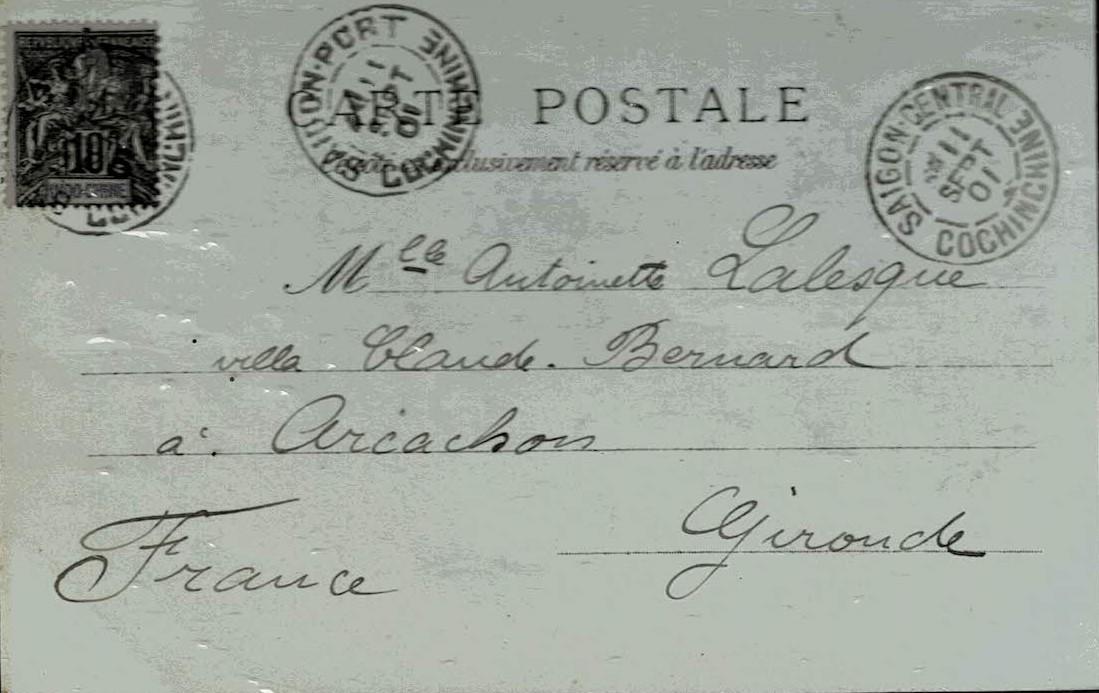 REPUBLIQUE FRANCAISE
10
INDO-CHINE
SAIGON-PORT
11
SEPT
01
COCHINCHINE
CARTE POSTALE
exclusivement réservé à l'adresse
SAIGON-CENTRAL
11
SEPT
01
COCHINCHINE
Mlle Antoinette Lalesque
villa Claude-Bernard
à Arcachon
Gironde
France